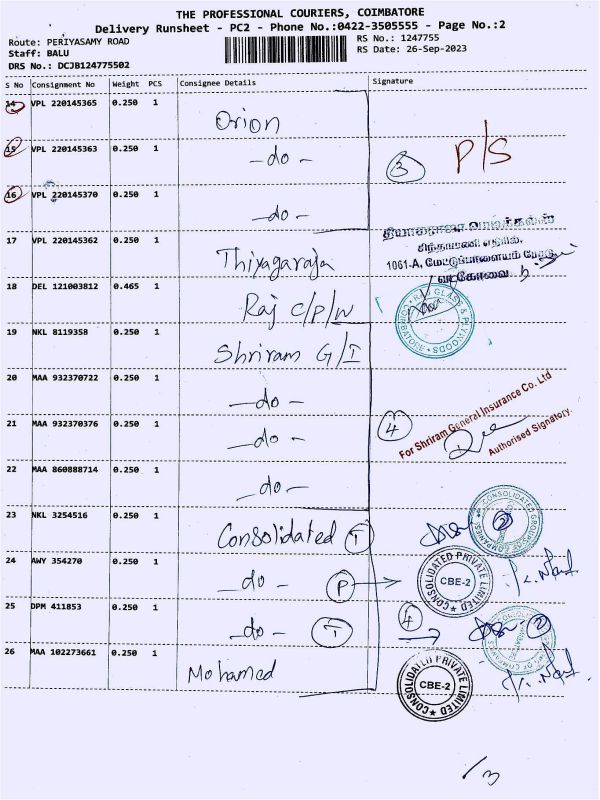 THE PROFESSIONAL COURIERS, COIMBATORE
Delivery Runsheet - PC2 - Phone No.:0422-3505555 - Page No.:2
Route: PERIYASAMY ROAD
RS No.: 1247755
Staff: BALU
RS Date: 26-Sep-2023
DRS No.: DCJB124775502
S No Consignment No Weight PCS Consignee Details Signature
14 VPL 220145365 0.250 1 Orion
15 VPL 220145363 0.250 1 -do- 3 P/S
16 VPL 220145370 0.250 1 -do-
17 VPL 220145362 0.250 1 Thiyagaraja
சிந்தாமணி எதிரில்,
1061-A, மேட்டுப்பாளையம் ரோடு,
வடகோவை
18 DEL 121003812 0.465 1 Raj C/P/W
GLASS & PLYWOODS
COIMBATORE
19 NKL 8119358 0.250 1 Shriram G/I
20 MAA 932370722 0.250 1 -do-
21 MAA 932370376 0.250 1 -do- 4
For Shriram General Insurance Co. Ltd
Authorised Signatory.
22 MAA 860888714 0.250 1 -do-
23 NKL 3254516 0.250 1 Consolidated T 2
CONSOLIDATED GROUP OF COMPANIES
24 AWY 354270 0.250 1 -do- P
CONSOLIDATED PRIVATE LIMITED
CBE-2
25 DPM 411853 0.250 1 -do- T 4 2
26 MAA 102273661 0.250 1 Mohamed
CONSOLIDATED PRIVATE LIMITED
CBE-2